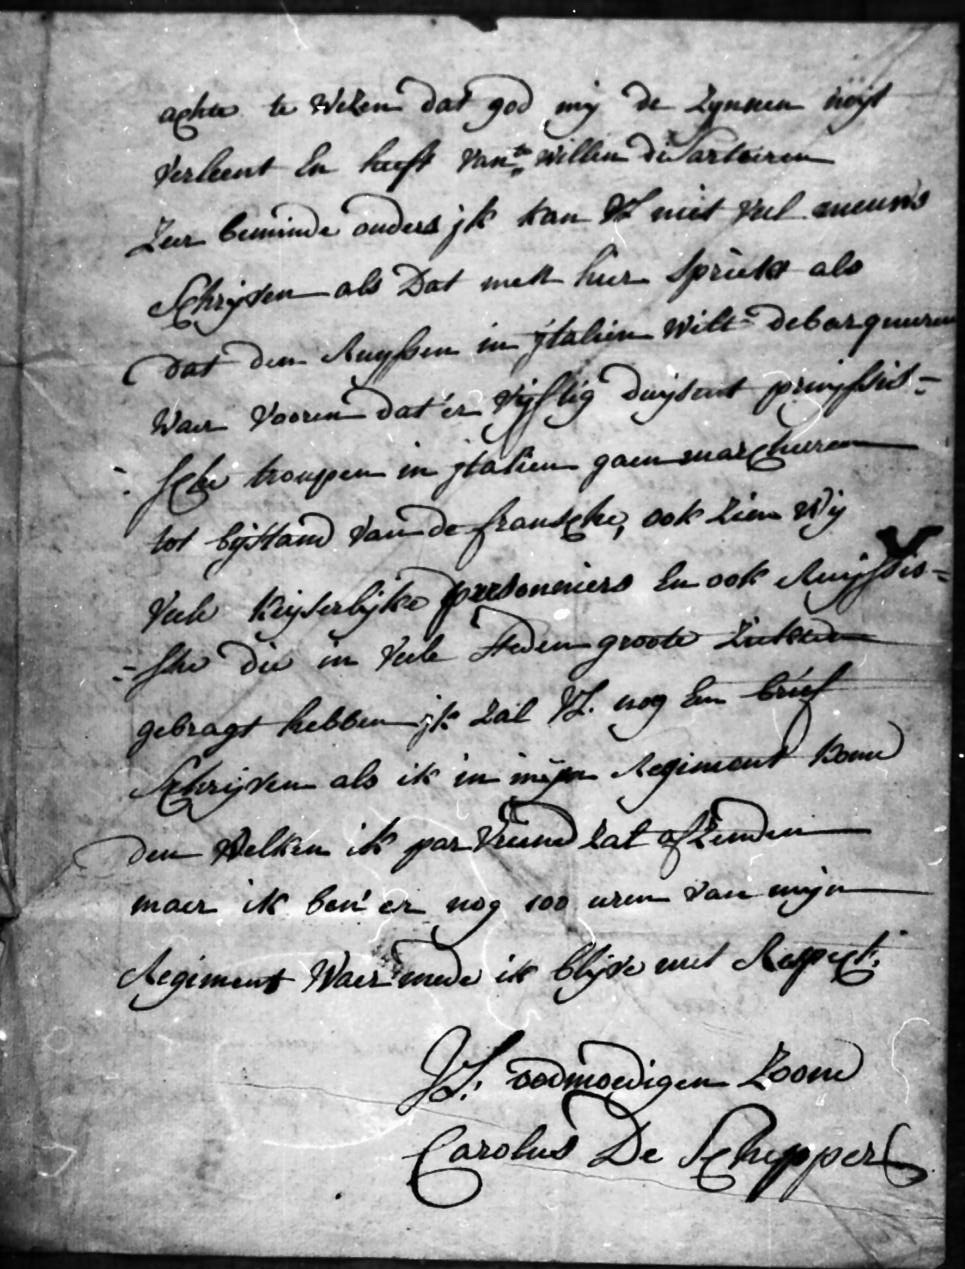 achte te Wezen dat god mij de Zynnen noijt
Verleent En heeft Van te willen diSarteiren
Zeer beminde ouders jk kan VL niet veel nieuws
Schrijven als Dat men hier Spriekt als
dat den Ruyssen in jtalien wilt debarqueuren
Waer Vooren dat er Vijftig duysent pruyssis=
=sche trouppen in jtalien gaen marcheren
tot bijstand Van de fransche, ook Zien Wij
Vele Keyserlijke presonniers En ook Ruyssis=
=sche die in Vele Steden groote Ziektens
gebragt hebben jk Zal VL. nog Een brief
Schrijven als ik in mijn Regiment kome
den Welken ik par Vriend Zal afzenden
maer ik ben er nog 100 uren van mijn
Regiment Waermede ik blijve met Respect:
VL. oodmoedigen Zoone
Carolus De Schepper